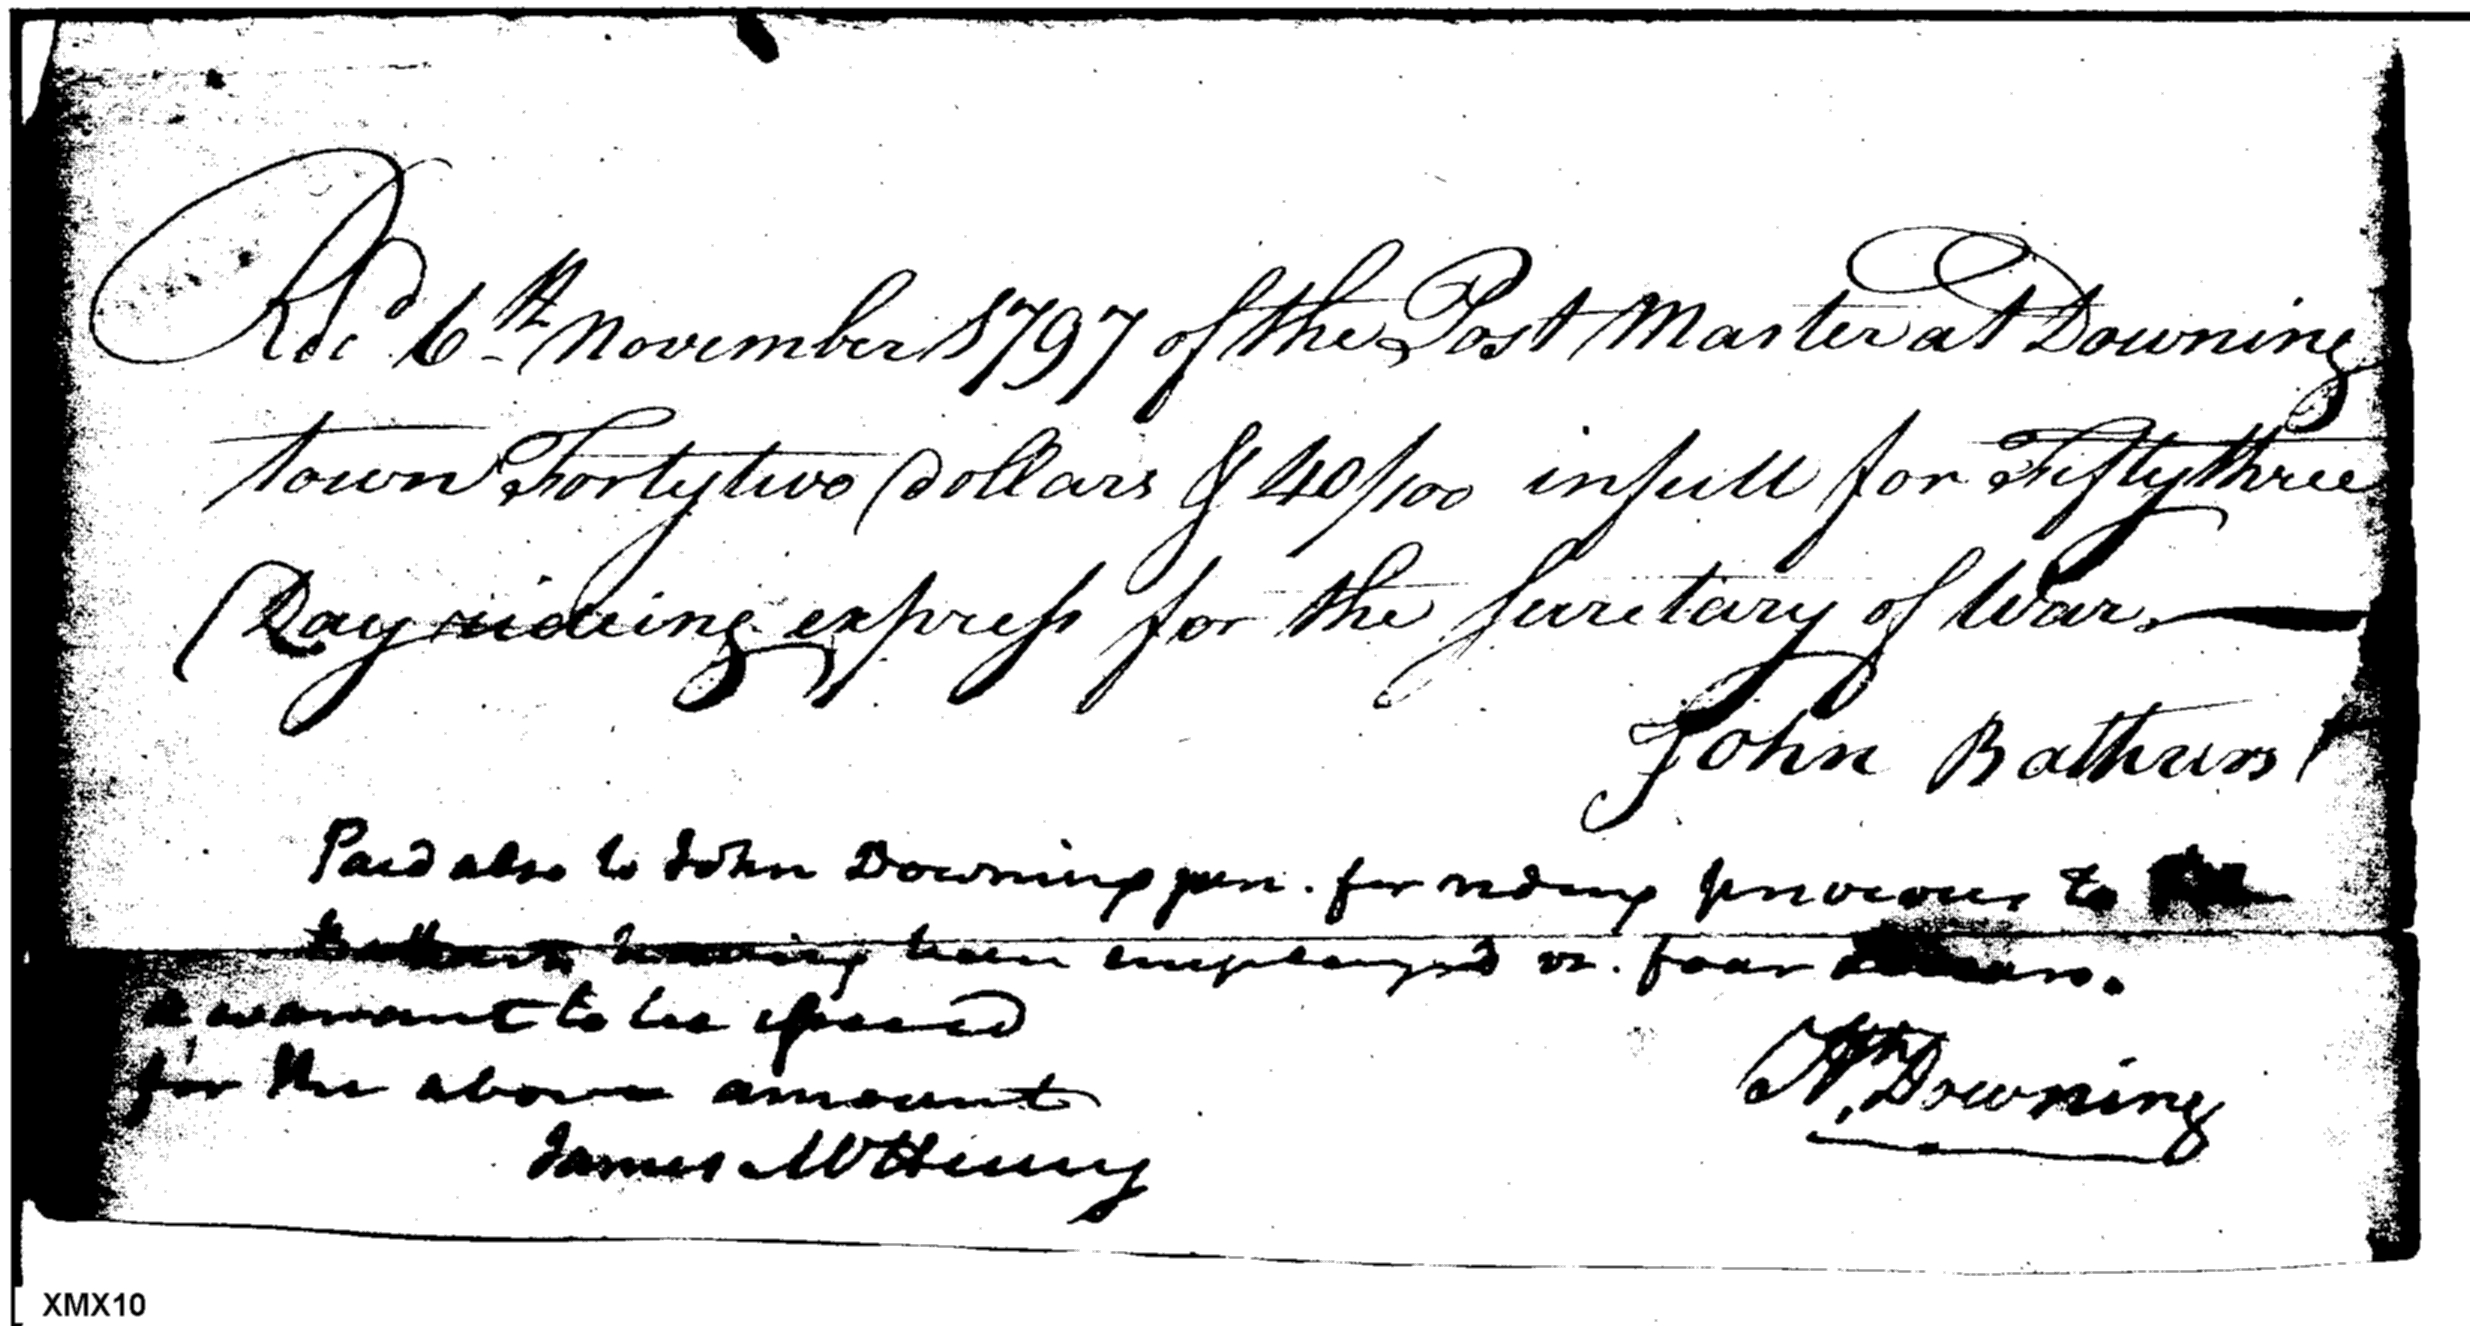 Rec^d 6^th November 1797 of the Post Master at Downing
town Forty two Dollars & 40/100 in full for Fifty three
Day riding express for the Secretary of War.
John Bathurst
Paid also to John Downing jun. for riding previous to
Bathurst having been employed vz. four Dollars.
a warrant to be issued
for the above amount
James McHenry
Downing
XMX10